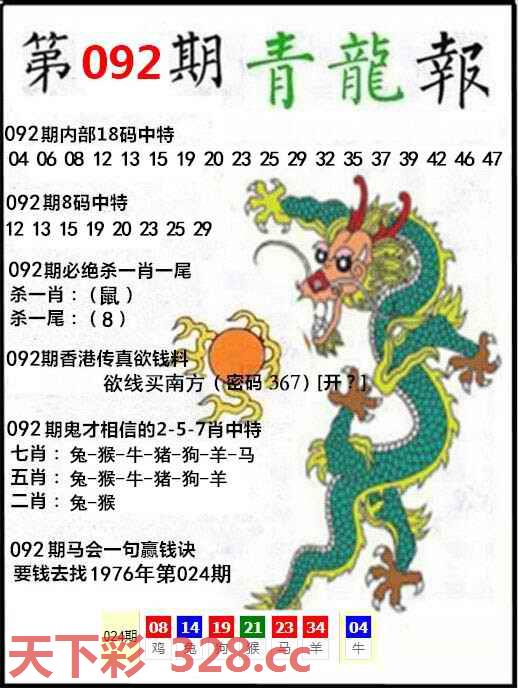 第092期青龍報
092期内部18码中特
04 06 08 12 13 15 19 20 23 25 29 32 35 37 39 42 46 47
092期8码中特
12 13 15 19 20 23 25 29
092期必绝杀一肖一尾
杀一肖：（鼠）
杀一尾：（8）
092期香港传真欲钱料
欲线买南方（密码 367）[开？]
092期鬼才相信的2-5-7肖中特
七肖：兔-猴-牛-猪-狗-羊-马
五肖：兔-猴-牛-猪-狗-羊
二肖：兔-猴
092期马会一句赢钱诀
要钱去找1976年第024期
024期 08 14 19 21 23 34 04
鸡 兔 狗 猴 马 羊 牛
天下彩 328.cc